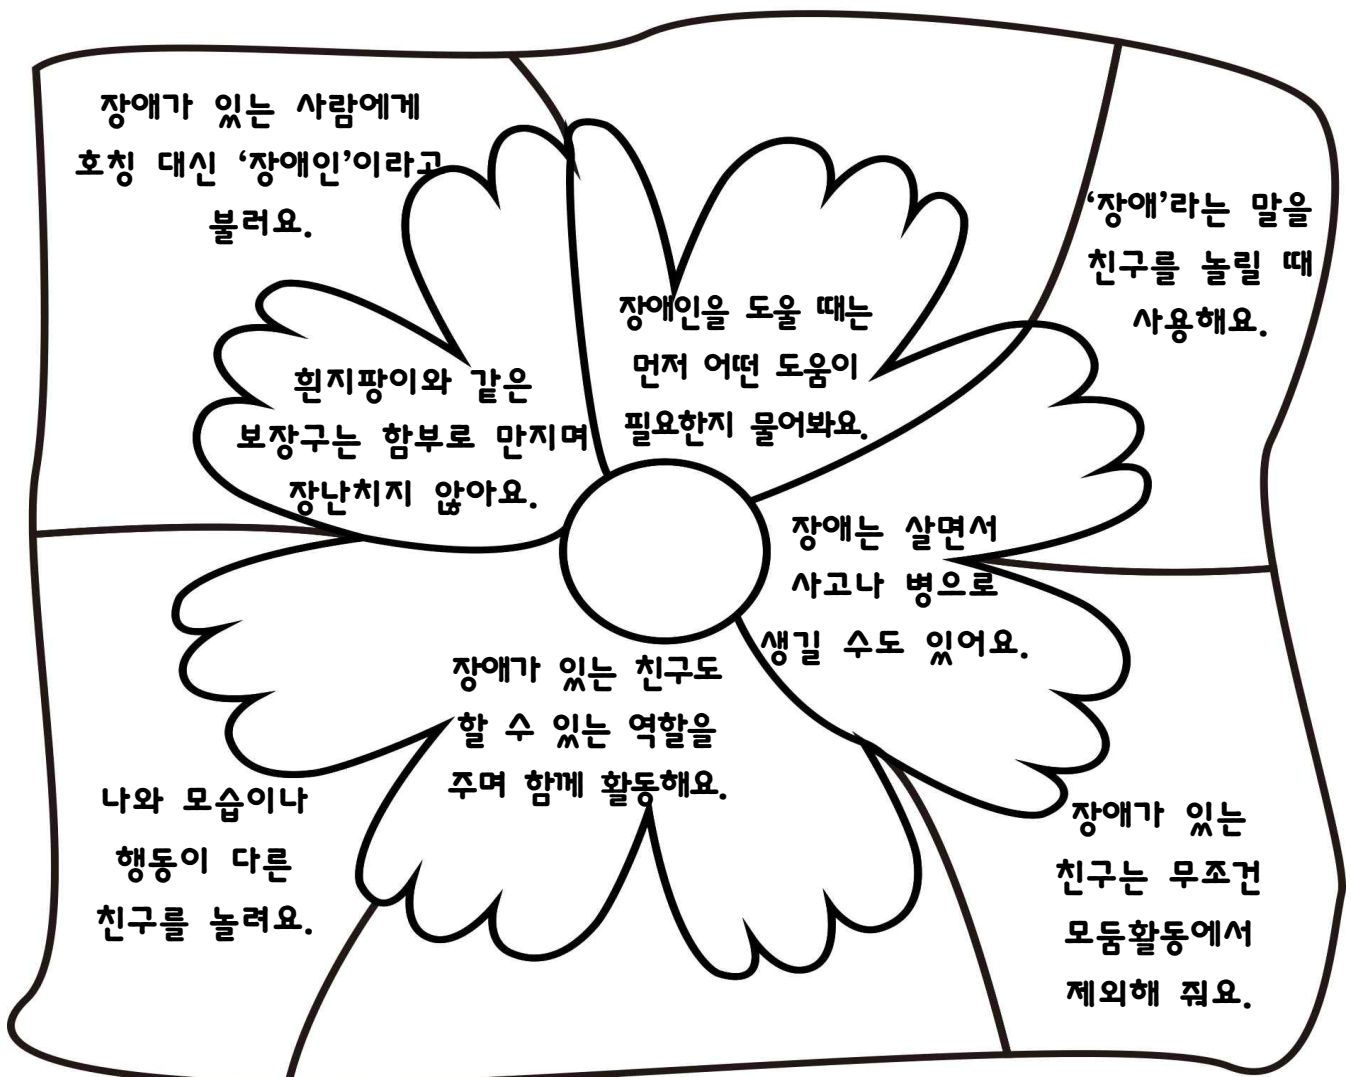 장애가 있는 사람에게
호칭 대신 ‘장애인’이라고
불러요.
‘장애’라는 말을
친구를 놀릴 때
사용해요.
장애인을 도울 때는
먼저 어떤 도움이
필요한지 물어봐요.
흰지팡이와 같은
보장구는 함부로 만지며
장난치지 않아요.
장애는 살면서
사고나 병으로
생길 수도 있어요.
장애가 있는 친구도
할 수 있는 역할을
주며 함께 활동해요.
나와 모습이나
행동이 다른
친구를 놀려요.
장애가 있는
친구는 무조건
모둠활동에서
제외해 줘요.